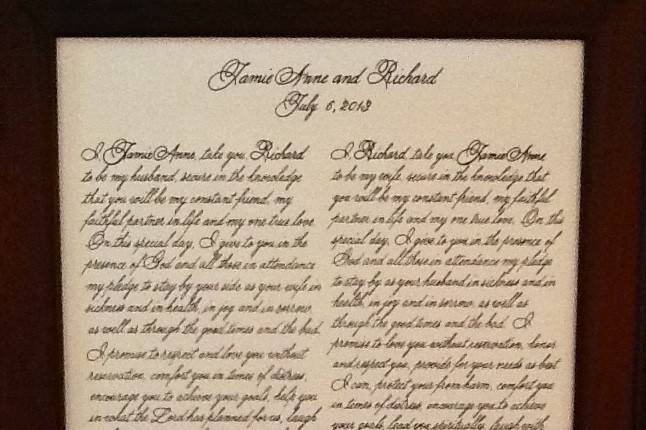 Jamie Anne and Richard
July 6, 2013
I, Jamie Anne, take you, Richard
to be my husband, secure in the knowledge
that you will be my constant friend, my
faithful partner in life and my one true love.
On this special day, I give to you in the
presence of God and all those in attendance
my pledge to stay by your side as your wife in
sickness and in health, in joy and in sorrow,
as well as through the good times and the bad.
I promise to respect and love you without
reservation, comfort you in times of distress,
encourage you to achieve your goals, help you
in what the Lord has planned for us, laugh
I, Richard, take you, Jamie Anne,
to be my wife, secure in the knowledge that
you will be my constant friend, my faithful
partner in life and my one true love. On this
special day, I give to you in the presence of
God and all those in attendance my pledge
to stay by as your husband in sickness and in
health, in joy and in sorrow, as well as
through the good times and the bad. I
promise to love you without reservation, honor
and respect you, provide for your needs as best
I can, protect you from harm, comfort you
in times of distress, encourage you to achieve
your goals, lead you spiritually, laugh with